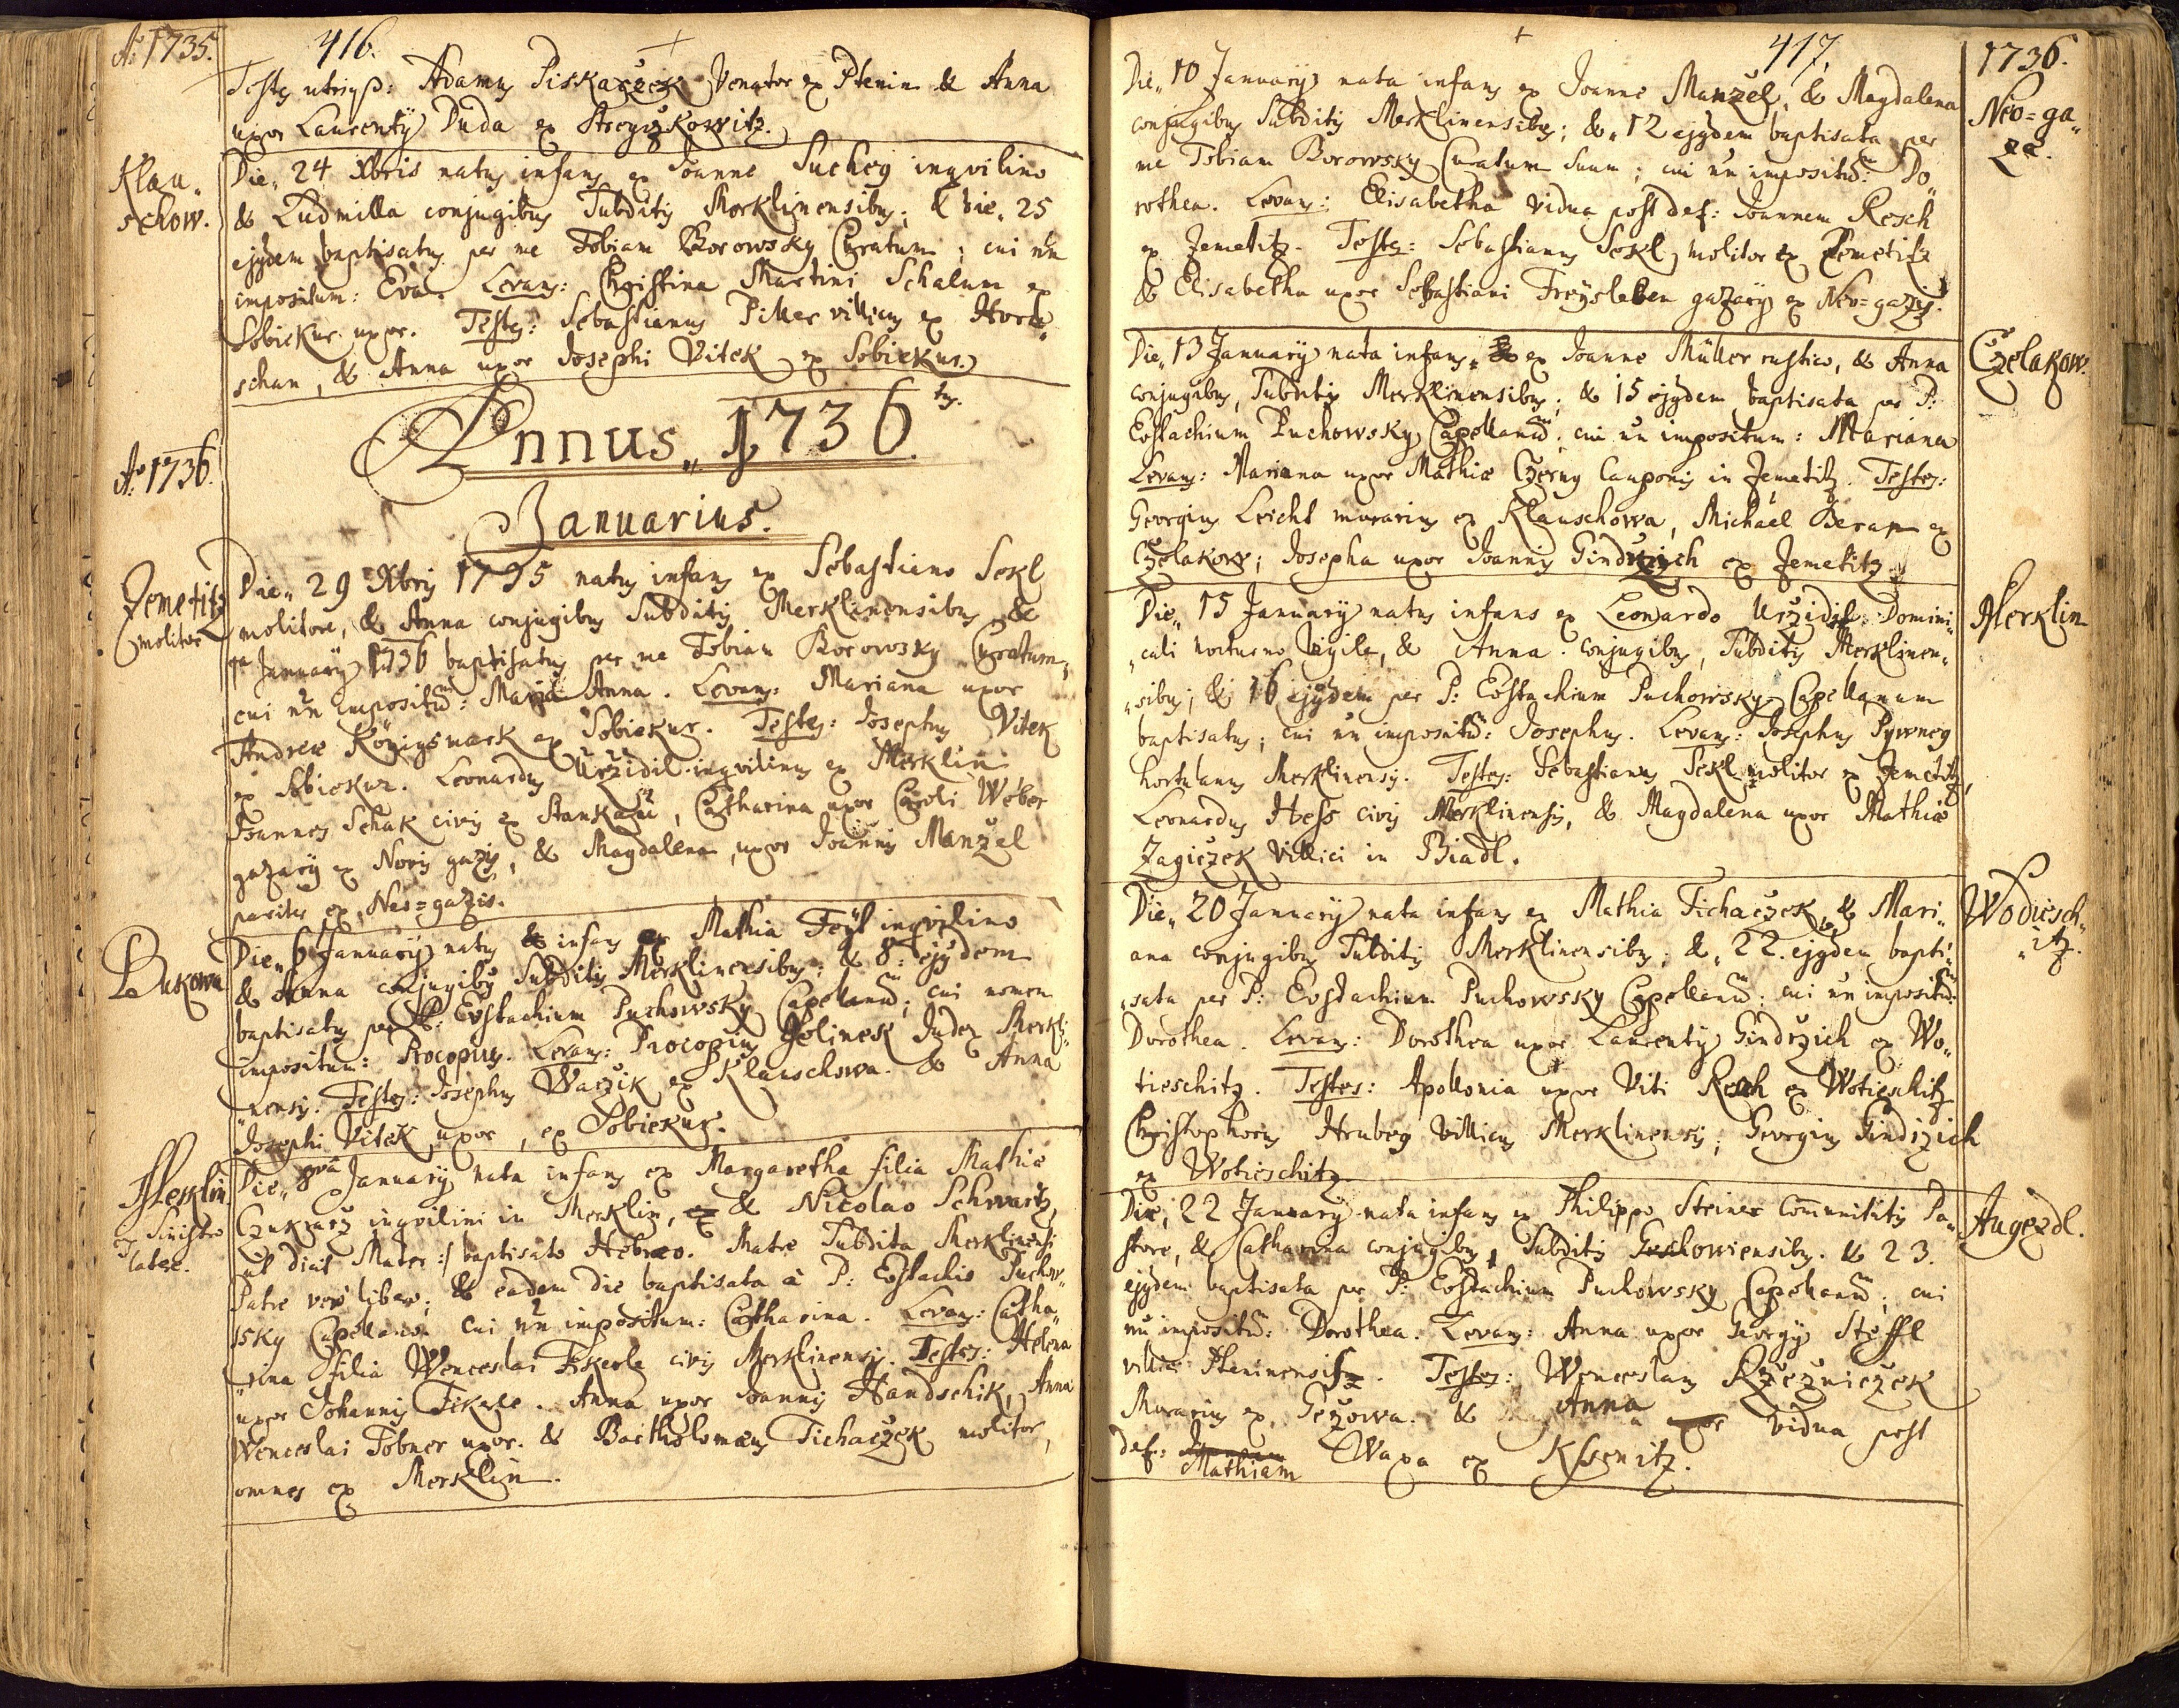 Aõ 1735.
416.
Testes utriusq: Adamus Piskaczek Venator ex Ptenin & Anna
uxor Laurentÿ Duda ex Strzyzkowitz.
Klau„
schow.
Die„ 24 Xbris natus infans ex Joanne Suchey inqvilino
& Ludmilla conjugibus Subditis Merklinensibus; & die„ 25
ejusdem baptisatus per me Tobiam Borowsky Curatum; cui nn̄
impositum: Eva. Levans: Christina Martini Schalum ex
Sobiekur uxor. Testes: Sebastianus Piller villicus ex Hor
schan, & Anna uxor Josephi Vitek ex Sobiekur.
Annus„ 1736.tus.
Aõ 1736.
Januarius.
Jemetitz
molitor
Die„ 29 Xbris 1735 natus infans ex Sebastiano Sekl
molitore, & Anna conjugibus Subditis Merklinensibus, &
1ma Januarÿ 1736 baptisatus per me Tobiam Borowsky Curatum;
cui nn̄ impositū: Maria Anna. Levans: Mariana uxor
Andreæ Königsmark ex Sobiekur. Testes: Josephus Vitek
ex Sobiekur. Leonardus Urzidil inqvilinus ex Merklin
Joannes Schak civis ex Stankau, Catharina uxor Caroli Weber
gazarÿ ex Novis gazis, & Magdalena, uxor Joannis Manzel
pariter ex Neo=gazis.
Bukowa
Die„ 6 Januarÿ natus & infans ex Mathia Feÿl inqvilino
& Anna conjugibus Subditis Merklinensibus: & 8: ejusdem
baptisatus per P: Eustachium Puchowsky Capellanū; cui nomen
impositum: Procopius. Levans: Procopius Jelinek Judex Merkli„
„nensis: Testes: Josephus Waczik ex Klauschowa. & Anna
Josephi Vitek uxor, ex Sobiekur.
Merklin
ex Sinistro
latere.
Die„ 8vâ Januarÿ nata infans ex Margaretha filia Mathiæ
Czukrarz inqvilini in Merklin, & Nicolao Schwartz,
ut dicit Mater :/ baptisato Hebræo. Matre Subdita Merklinensi
Patre vero libero; & eadem die baptisata à P: Eustachio Puchow„
„sky Capellano. cui nn̄ impositum: Catharina. Levans: Catha„
„rina filia Wenceslai Fikerle civis Merklinensis. Testes: Helena
uxor Johannis Fikerle. Anna uxor Joannis Handschik, Anna
Wenceslai Tobner uxor. & Bartholomæus Tichaczek molitor,
omnes ex Merklin.
417.
1736.
Neo=ga„
zæ.
Die„ 10 Januarÿ nata infans ex Joanne Manzel, & Magdalena
conjugibus Subditis Merklinensibus; &„ 12 ejusdem baptisata per
me Tobiam Borowsky Curatum Suum; cui nn̄ impositū: Do„
rothea. Levans: Elisabetha vidua post def: Joannem Resch
ex Jemetitz. Testes: Sebastianus Sekl molitor ex Jemetitz
& Elisabetha uxor Sebastiani Freÿsleben gazarÿ ex Neo=gazis.
Czelakow.
Die„ 13 Januarÿ nata infans„ ex Joanne Müller rustico, & Anna
conjugibus, Subditis Merklinensibus; & 15 ejusdem baptisata per P:
Eustachium Puchowsky Capellanū; cui nn̄ impositum: Mariana
Levans: Mariana uxor Mathiæ Czerny Cauponis in Jemetitz. Testes:
Georgius Leicht murarius ex Klauschowa, Michaël Beran ex
Czelakow; Josepha uxor Joannis Gindrzich ex Jemetitz
Merklin
Die„ 15 Januarÿ natus infans ex Leonardo Urzidil Domini„
„cali nocturno Vigile, & Anna conjugibus, Subditis Merklinen„
„sibus; & 16 ejusdem per P: Eustachium Puchowsky Capellanum
baptisatus; cui nn̄ impositū: Josephus. Levans: Josephus Pywney
hortulanus Merklinensis. Testes: Sebastianus Sekl molitor ex Jemetitz,
Leonardus Hess civis Merklinensis, & Magdalena uxor Mathiæ
Zagiczek Villici in Biadl.
Wodiesch„
„itz.
Die„ 20 Januarÿ nata infans ex Mathia Tichaczek, & Mari„
ana conjugibus Subditis Merklinensibus; &„ 22. ejusdem bapti„
„sata per P: Eustachium Puchowsky Capellanū; cui nn̄ impositū:
Dorothea. Levans: Dorothea uxor Laurentÿ Gindrzich ex Wo„
tieschitz. Testes: Apollonia uxor Viti Resch ex Wotieschitz
Christophorus Hrubey Villicus Merklinensis; Georgius Gindrzich
ex Wotieschitz
Augezdl.
Die, 22 Januarÿ nata infans ex Philippo Steiner Com̄unitatis Pa„
store, & Catharina conjugibus, Subditis Geschowiensibus. & 23.
ejusdem baptisata per P: Eustachium Puchowsky Capellanū; cui
nn̄ impositū: Dorothea. Levans: Anna uxor Georgÿ Steffl
villici Pteninensis. Testes: Wenceslaus Rzezniczek
Murarius ex Gezowa. & Anna uxor vidua post
def: Joannem Mathiam Wawa ex Kssenitz.